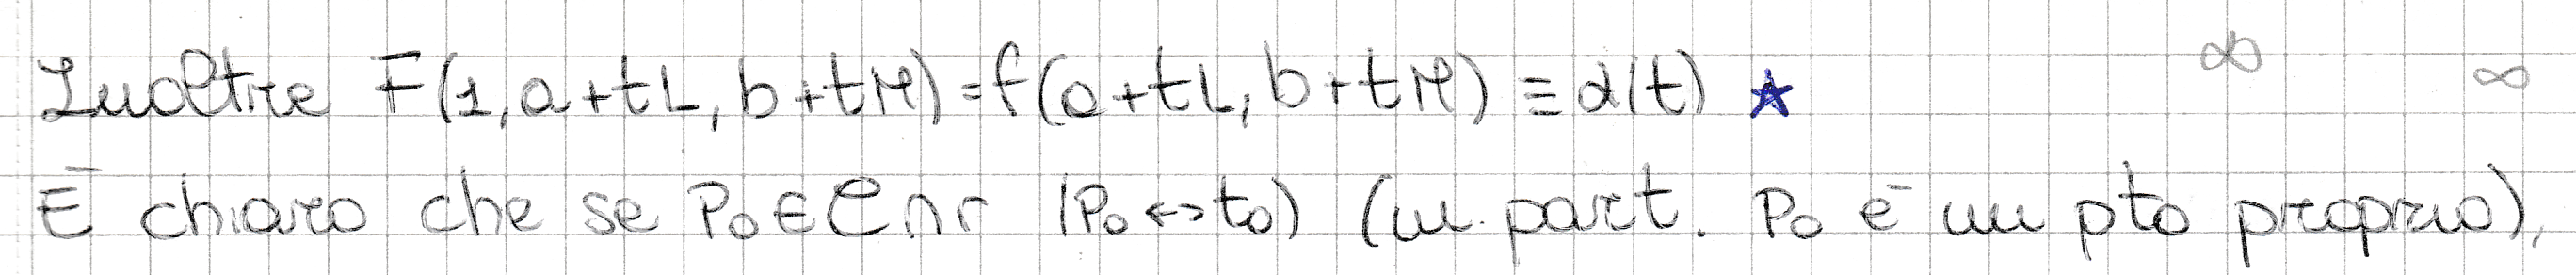 Inoltre F(1, a+tL, b+tM) = f(a+tL, b+tM) ≡ α(t) ★ ∞ ∞
È chiaro che se P₀ ∈ C ∩ r (P₀ ↔ t₀) (in part. P₀ è un pto proprio),